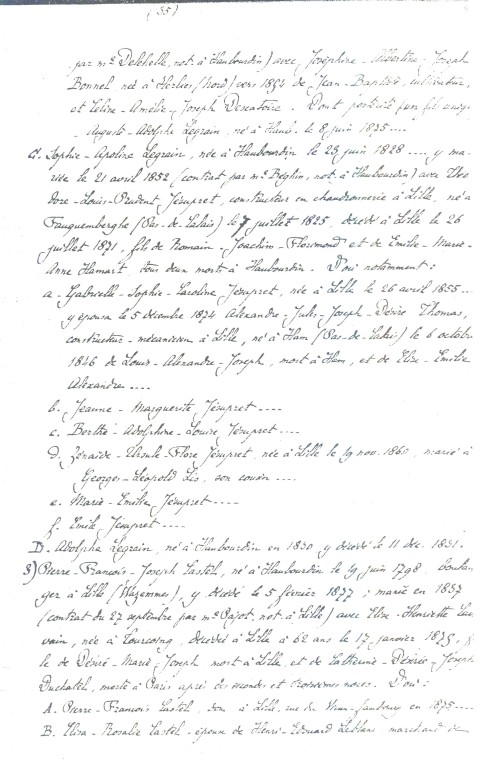 (55)
par Me Delehelle, not. à Haubourdin) avec Joséphine-Albertine-Joseph
Bonnel née à Herlies (Nord) vers 1854 de Jean-Baptiste, cultivateur,
et Céline-Amélie-Joseph Descatoire. Dont postérité
Auguste-Adolphe Legrain, né à Haub. le 8 juin 1835....
C. Sophie-Apoline Legrain, née à Haubourdin le 25 juin 1828 .... y ma-
riée le 21 avril 1852 (contrat par Me Béghin, not. à Haubourdin) avec Théo
dore-Louis-Prudent Jésupret, constructeur en chaudronnerie à Lille, né à
Fauquemberghe (Pas-de-Calais) le 7 juillet 1825, décédé à Lille le 26
juillet 1871, fils de Romain-Joachim-Florimond et de Emilie-Marie-
Anne Hamart tous deux morts à Haubourdin. D'où notamment :
a. Gabrielle-Sophie-Caroline Jésupret, née à Lille le 26 avril 1855...
y épousa le 5 décembre 1874 Alexandre-Jules-Joseph-Désiré Thomas,
constructeur-mécanicien à Lille, né à Ham (Pas-de-Calais) le 6 octobre
1846 de Louis-Alexandre-Joseph, mort à Ham, et de Elise-Emilie
Alexandre....
b. Jeanne-Marguerite Jésupret....
c. Berthe-Adolphine-Louise Jésupret....
d. Zénaïde-Ursule-Flore Jésupret, née à Lille le 19 nov. 1860, mariée à
Georges-Léopold Lis, son cousin....
e. Marie-Emilie Jésupret....
f. Emile Jésupret....
D. Adolphe Legrain, né à Haubourdin en 1830 y décédé le 11 déc. 1831.
3) Pierre-François-Joseph Castel, né à Haubourdin le 19 juin 1798, boulan-
ger à Lille (Wazemmes), y décédé le 5 février 1877 ; marié en 1837
(contrat du 27 septembre par Me Pajot, not. à Lille) avec Elise-Henriette Lau
wain, née à Tourcoing, décédée à Lille à 62 ans le 17 janvier 1875, fil
le de Désiré-Marie-Joseph mort à Lille, et de Catherine-Désirée-Joseph
Duchatel, morte à Paris après des secondes et troisièmes noces. D'où :
A. Pierre-François Castel, dem. à Lille, rue du Vieux-faubourg en 1875....
B. Elisa-Rosalie Castel-épouse de Henri-Edouard Leblanc, marchand de